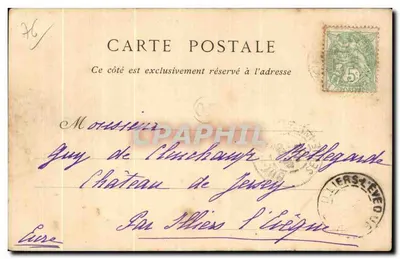 76
CARTE POSTALE
Ce côté est exclusivement réservé à l'adresse
5c
Monsieur
CPAPHIL.COM
Guy de Clinchamp Bellegarde
Château de Jersey
Par Illiers l'Evêque
ILLIERS-L'EVEQUE
Eure